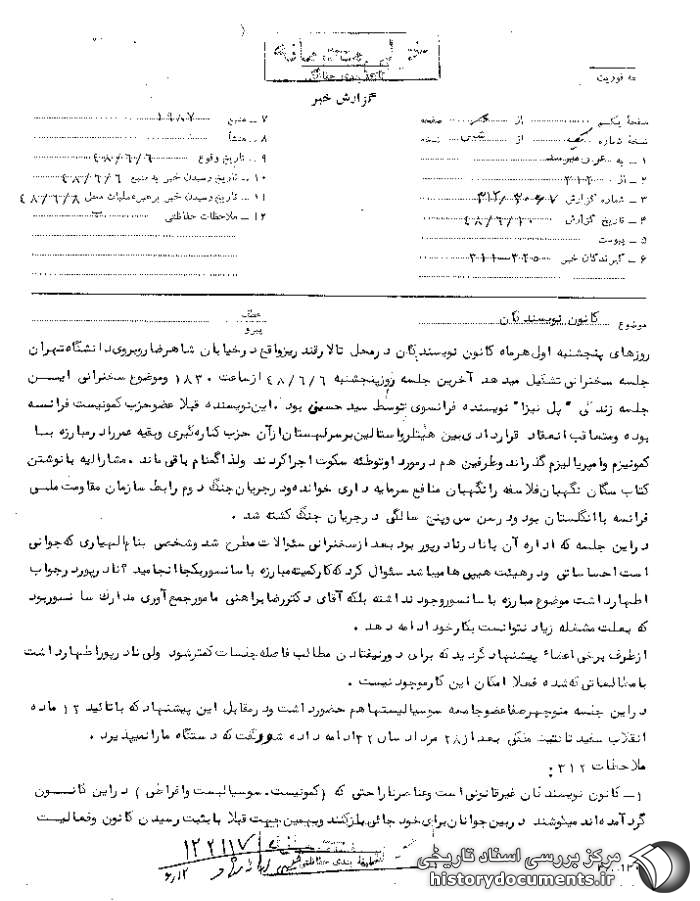 خیلی محرمانه
طبقه بندی حفاظتی
به فوریت
گزارش خبر
صفحه یکم از صفحه
نسخه شماره از نسخه
۱ ـ به
۲ ـ از ۳۱۲
۳ ـ شماره گزارش
۴ ـ تاریخ گزارش ۴۸/۶/۱۰
۵ ـ پیوست
۶ ـ گیرندگان خبر
۷ ـ منبع ۱۹۸۷
۸ ـ منشأ
۹ ـ تاریخ وقوع ۴۸/۶/۶
۱۰ ـ تاریخ رسیدن خبر به منبع ۴۸/۶/۶
۱۱ ـ تاریخ رسیدن خبر برهبر عملیات محل ۴۸/۶/۸
۱۲ ـ ملاحظات حفاظتی
موضوع کانون نویسندگان
عطف
پیرو
روزهای پنجشنبه اول هرماه کانون نویسندگان در محل تالار قندریز واقع در خیابان شاهرضا روبروی دانشگاه تهران
جلسه سخنرانی تشکیل میدهد آخرین جلسه روز پنجشنبه ۴۸/۶/۶ از ساعت ۱۸۳۰ وموضوع سخنرانی ایسن
جلسه زندگی " پل نیزا" نویسنده فرانسوی توسط سید حسینی بود . این نویسنده قبلا عضو حزب کمونیست فرانسه
بوده ومتعاقب انعقاد قراردادی بین هیتلر یا استالین بر سر لهستان از آن حزب کناره گیری وبقیه عمر را در مبارزه بسا
کمونیزم وامپریالیزم گذراند وطرفین هم در مورد او توطئه سکوت اجرا کردند ولذا گمنام باقی ماند . مشارالیه با نوشتن
کتاب سگان نگهبان فلاسفه را نگهبان منافع سرمایه داری خوانده ودر جریان جنگ دوم رابط سازمان مقاومت ملی
فرانسه با انگلستان بود ودر سن سی وپنج سالگی در جریان جنگ کشته شد .
در این جلسه که اداره آن با نادر نادرپور بود بعد از سخنرانی سئوالات مطرح شد وشخصی بنام الهیاری که جوانی
است احساساتی ودر هیئت هیپی ها میباشد سئوال کرد که کار کمیته مبارزه با سانسور بکجا انجامید ؟ نادرپور در جواب
اظهار داشت موضوع مبارزه با سانسور وجود نداشته بلکه آقای دکتر رضا براهنی مامور جمع آوری مدارک سانسور بود
که بعلت مشغله زیاد نتوانست بکار خود ادامه دهد .
از طرف برخی اعضاء پیشنهاد گردید که برای دور نیفتادن مطالب فاصله جلسات کمتر شود ولی نادرپور اظهار داشت
با مطالعاتی که شده فعلا امکان این کار موجود نیست .
در این جلسه منوچهر صفا عضو جامعه سوسیالیستها هم حضور داشت ودر مقابل این پیشنهاد که با تائید ۱۲ ماده
انقلاب سفید تا تثبیت متکی بعد از ۲۸ مرداد سال ۳۲ ادامه داده شود گفت که دستگاه ما را نمیپذیرد .
ملاحظات ۳۱۲ :
۱ـ کانون نویسندگان غیر قانونی است وعناصر ناراحتی که ( کمونیست، سوسیالیست وافراطی ) در این کانسون
گرد آمده اند میکوشند در بین جوانان برای خود جائی باز کنند وبهمین جهت قبلا با بثبت رسیدن کانون وفعالیت
۱۲۲۱۱۷
طبقه بندی حفاظتی
مرکز بررسی اسناد تاریخی
historydocuments.ir